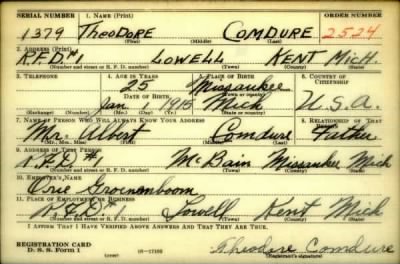 SERIAL NUMBER 1. NAME (Print) ORDER NUMBER
1379 THEODORE COMDURE 2524
(First) (Middle) (Last)
2. ADDRESS (Print)
R.F.D #1 LOWELL KENT MICH.
(Number and street or R. F. D. number) (Town) (County) (State)
3. TELEPHONE 4. AGE IN YEARS 5. PLACE OF BIRTH 6. COUNTRY OF CITIZENSHIP
25 Missaukee
DATE OF BIRTH (Town or county)
Jan 1 1915 Mich U.S.A.
(Exchange) (Number) (Mo.) (Day) (Yr.) (State or country)
7. NAME OF PERSON WHO WILL ALWAYS KNOW YOUR ADDRESS 8. RELATIONSHIP OF THAT PERSON
Mr. Albert Comdure Father
(Mr., Mrs., Miss) (First) (Middle) (Last)
9. ADDRESS OF THAT PERSON
R.F.D #1 McBain Missaukee Mich
(Number and street or R. F. D. number) (Town) (County) (State)
10. EMPLOYER'S NAME
Orie Groenenboom
11. PLACE OF EMPLOYMENT OR BUSINESS
R.F.D #1 Lowell Kent Mich
(Number and street or R. F. D. number) (Town) (County) (State)
I AFFIRM THAT I HAVE VERIFIED ABOVE ANSWERS AND THAT THEY ARE TRUE.
REGISTRATION CARD
D. S. S. Form 1 Theodore Comdure
(Registrant's signature)